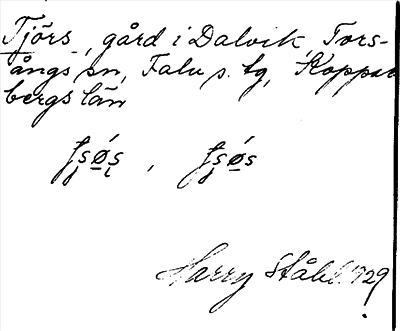 Tjörs, gård i Dalvik, Tors-
ångs sn, Falu s. tg, Koppar
bergs län
Harry Ståhl 1929